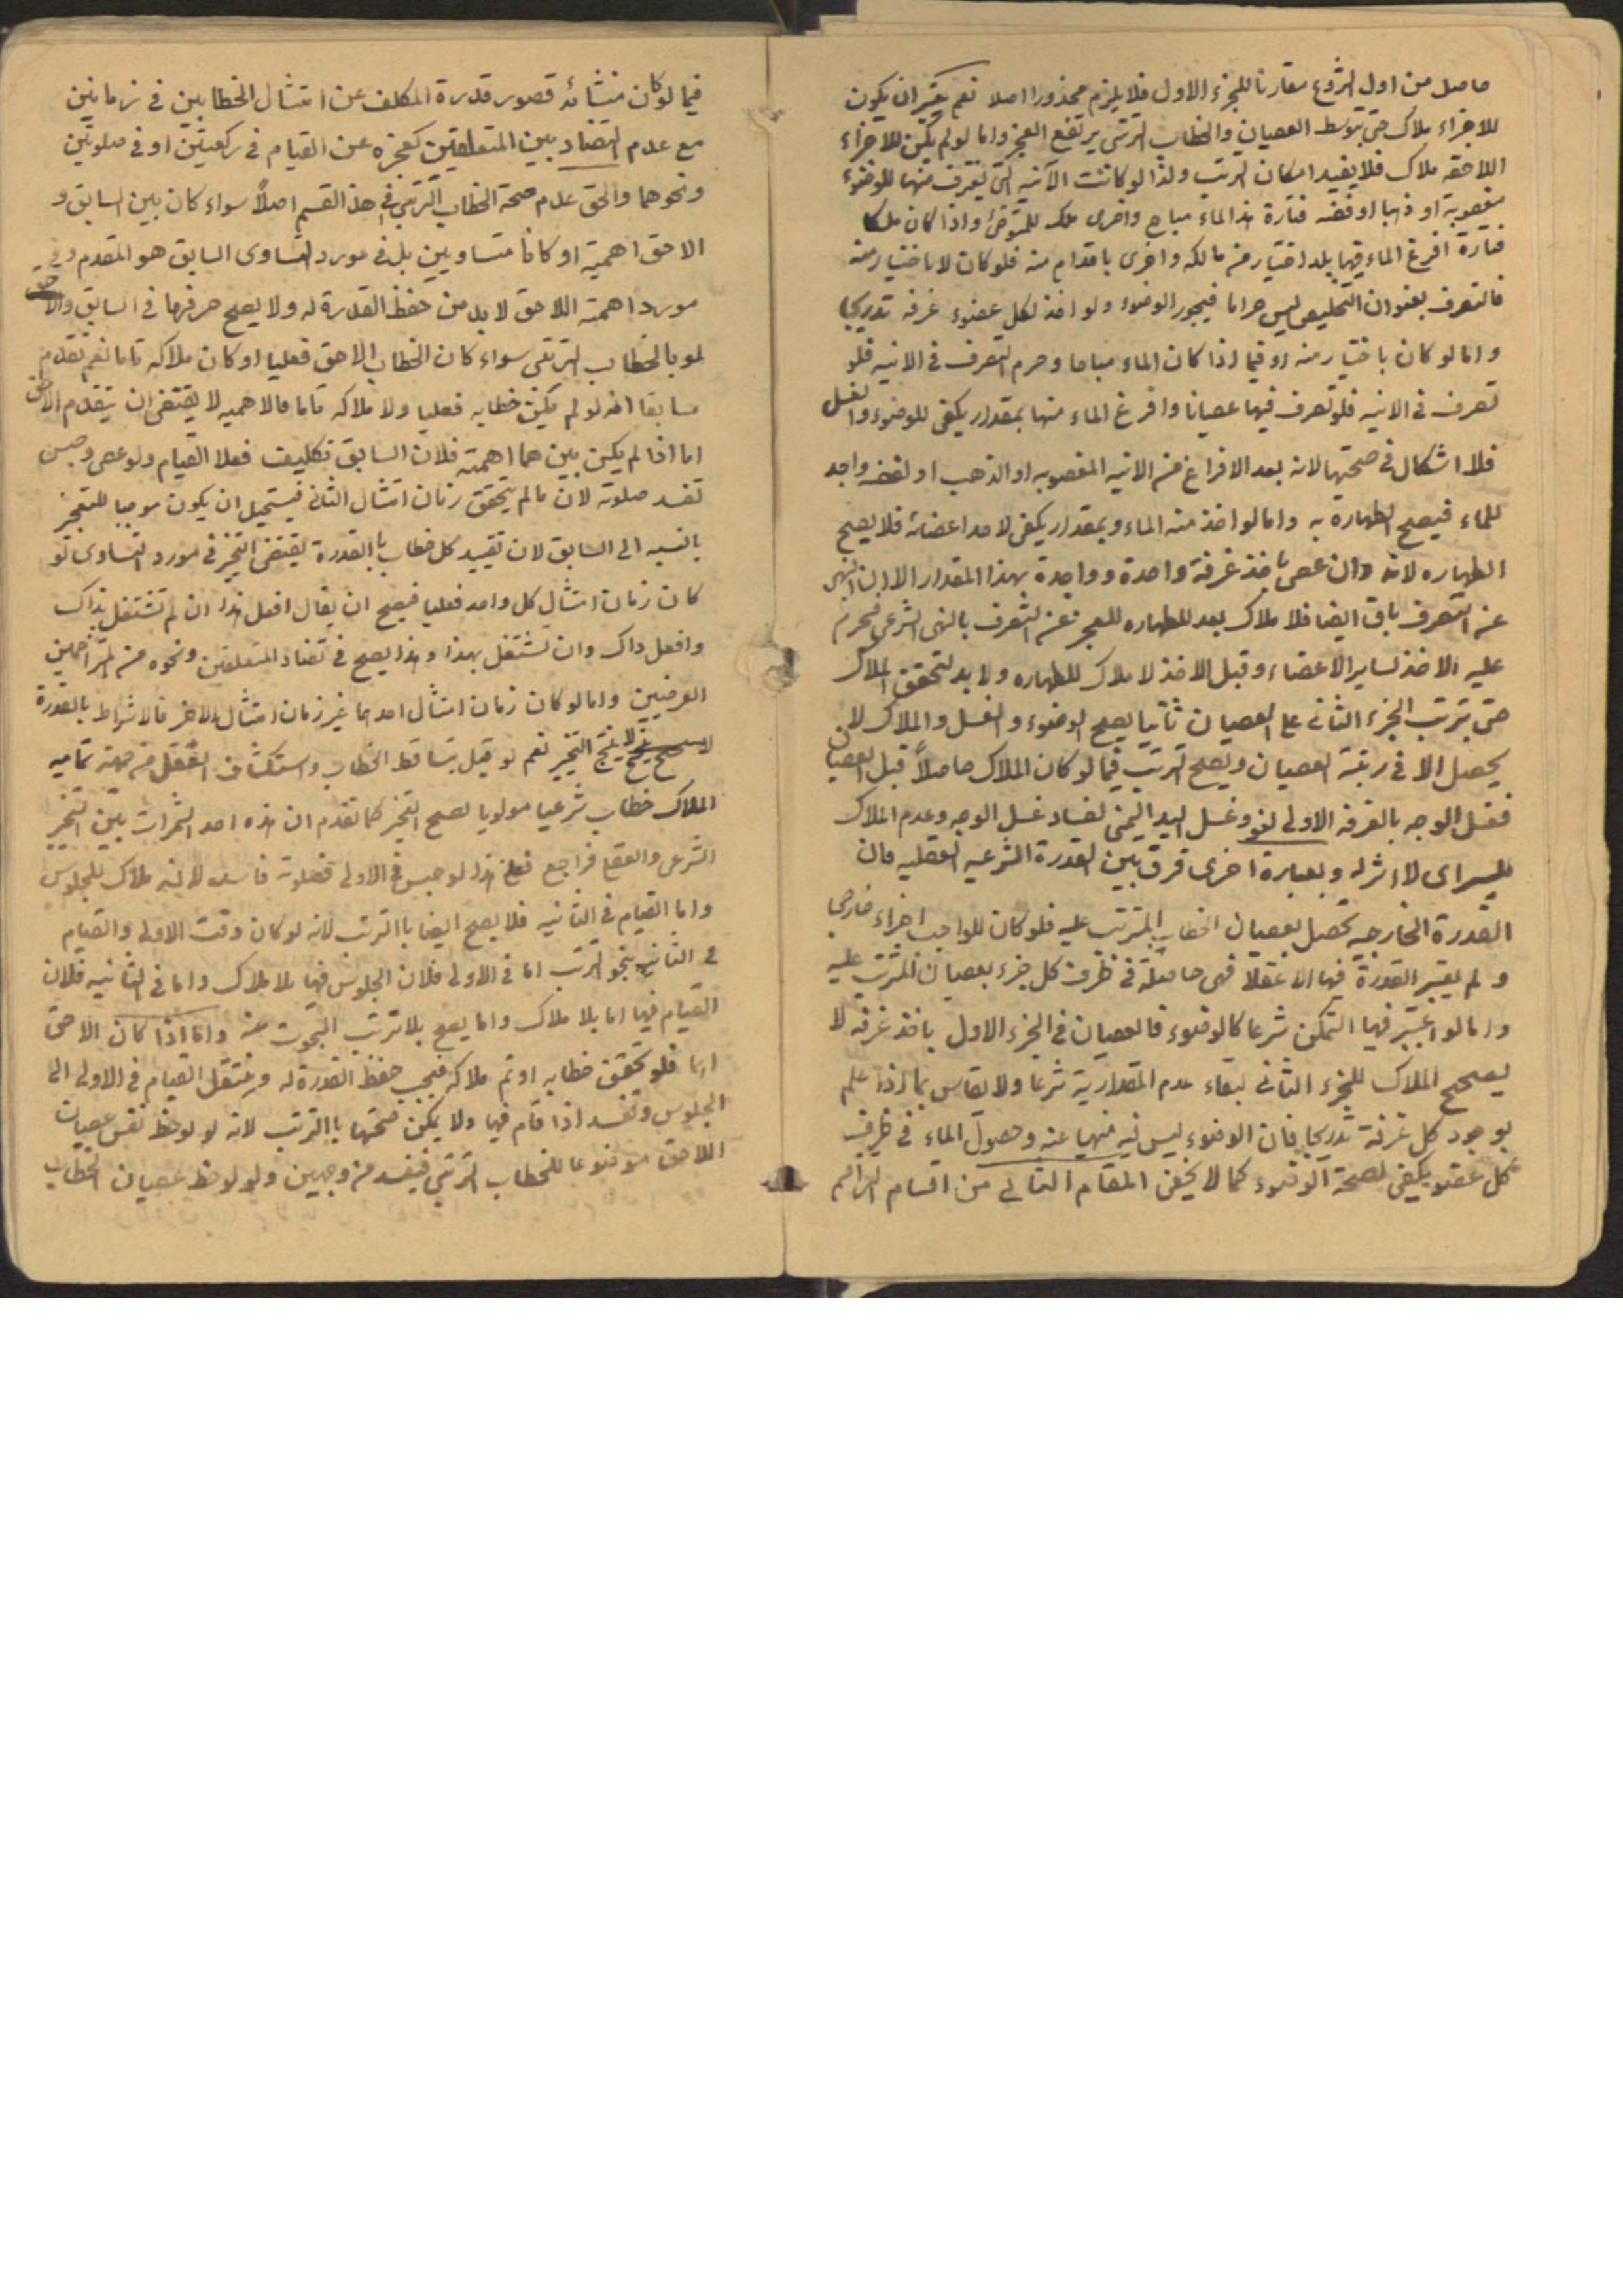 حاصل من اول الشروع مقارنا للجزء الاول فلا يلزم محذورا اصلا نعم يعتبر ان يكون
للاجزاء ملاك حتى بتوسط العصيان والخطاب الترتبي يرتفع العجز واما لو لم يكن للاجزاء
اللاحقة ملاك فلا يفيد امكان الترتب ولذا لو كانت الآنية التي يغترف منها للوضوء
مغصوبة او ذهبا او فضه فتارة هذا الماء مباح واخرى ملك للمتوضئ واذا كان ملكا
فتارة افرغ الماء فيها بلا اختيار من مالكه واخرى باقدام منه فلو كان لا باختيار منه
فالتصرف بعنوان التخليص ليس حراما فيجوز الوضوء ولو اخذ لكل عضوء غرفه تدريجا
واما لو كان باختيار منه او فيما اذا كان الماء مباحا وحرم التصرف في الانيه فلو
تصرف في الانيه فلو تصرف فيها عصيانا وافرغ الماء منها بمقدار يكفى للوضوء والغسل
فلا اشكال في صحتها لانه بعد الافراغ من الانيه المغصوبه او الذهب او الفضه واجد
للماء فيصح الطهاره به واما لو اخذ منه الماء وبمقدار يكفى لاحد اعضائه فلا يصح
الطهاره لانه وان عصى باخذ غرفة واحدة وواجدة بهذا المقدار الا ان النهى
عن التصرف باق ايضا فلا ملاك بعد للطهاره للعجز عن التصرف بالنهى الشرعى فيحرم
عليه الاخذ لساير الاعضاء وقبل الاخذ لا ملاك للطهاره ولا بد لتحقق الملاك
حتى يترتب الجزء الثانى على العصيان ثانيا يصح الوضوء والغسل والملاك لا
يحصل الا في رتبة العصيان ويصح الترتب فيما لو كان الملاك حاصلاً قبل العصيان
فغسل الوجه بالغرفه الاولى لغو وغسل اليد اليمنى لفساد غسل الوجه وعدم الملاك
لليسراى لا اثر له وبعبارة اخرى فرق بين القدرة الشرعيه العقليه فان
القدرة الخارجيه تحصل بعصيان الخطاب المترتب عليه فلو كان للواجب اجزاء خارجى
ولم يعتبر القدرة فيها الا عقلا فهى حاصلة في ظرف كل جزء بعصيان المترتب عليه
واما لو اعتبر فيها التمكن شرعا كالوضوء فالعصيان في الجزء الاول باخذ غرفه لا
يصحح الملاك للجزء الثانى لبقاء عدم المقدارية شرعا ولا يقاس بما اذا علم
بوجود كل غرفة تدريجا فان الوضوء ليس فيه منهيا عنه وحصول الماء في ظرف
كل عضو يكفى لصحة الوضوء كما لا يخفى المقام الثانى من اقسام التزاحم
فيما لو كان منشائه قصور قدرة المكلف عن امتثال الخطابين في زمانين
مع عدم التضاد بين المتعلقين كعجزه عن القيام في ركعتين او في صلوتين
ونحوهما والحق عدم صحة الخطاب الترتبى في هذا القسم اصلاً سواء كان بين السابق و
الاحق اهمية او كانا متساويين بل في مورد التساوى السابق هو المقدم وفى
مورد اهمية اللاحق لا بد من حفظ القدرة له ولا يصح صرفها في السابق
لو بالخطاب الترتبى سواء كان الخطاب الاحق فعليا او كان ملاكه تاما نعم تقدم
سابقا انه لو لم يكن خطابه فعليا ولا ملاكه تاما فالاهميه لا يقتضى ان يتقدم الاحق
اما اذا لم يكن بينهما اهمية فلان السابق تكليف فعلا القيام ولو عصى وجلس
تفسد صلوته لان ما لم يتحقق زمان امتثال الثانى فيستحيل ان يكون موجبا للتعجيز
بالنسبه الى السابق لان تقييد كل خطاب باالقدرة يقتضى التخير في مورد التساوى لو
كان زمان امتثال كل واحد فعليا فيصح ان يقال افعل هذا ان لم تشتغل بذاك
وافعل ذاك وان لم تشتغل بهذا وهذا يصح في تضاد المتعلقين ونحوه من المتزاحمين
العرضيين واما لو كان زمان امتثال احدهما غير زمان امتثال الاخر فالاشراط بالقدرة
لا ينتج التخير نعم لو قيل بتساقط الخطاب واستكشاف العقل من جهة تماميه
الملاك خطاب شرعيا مولويا لصح التخير كما تقدم ان هذه احد الثمرات بين التخير
الشرعى والعقلى فراجع فعلى هذا لو جلس في الاولى فصلوته فاسده لانه ملاك للجلوس
واما القيام في الثانيه فلا يصح ايضا باالترتب لانه لو كان وقت الاولى والقيام
في الثانيه بنحو الترتب اما في الاولى فلان الجلوس فيها بلا ملاك واما في الثانيه فلان
القيام فيها اما بلا ملاك واما يصح بلا ترتب المبحوث عنه واما اذا كان الاحق
اهما فلو تحقق خطابه او تم ملاكه فيجب حفظ القدرة له وينتقل القيام في الاولى الى
الجلوس وتفسد اذا قام فيها ولا يمكن صحتها باالترتب لانه لو لوحظ نفس عصيان
اللاحق موضوعا للخطاب الترتبى فيفسد من وجهين ولو لوحظ عصيان الخطاب